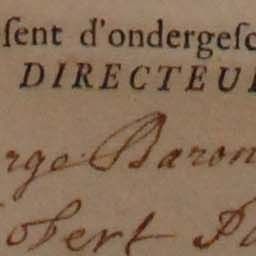 ſent d'ondergeſc
DIRECTEU
rge Baron
obert Pa